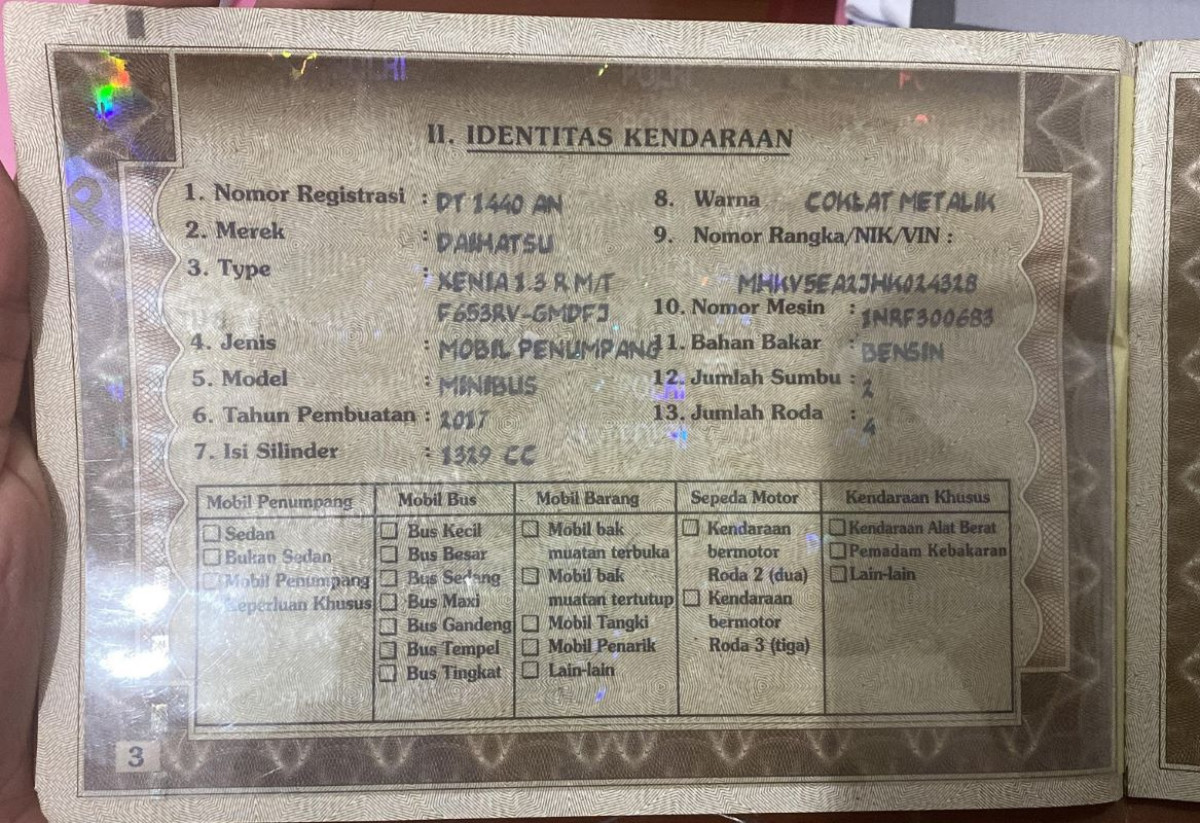 II. IDENTITAS KENDARAAN
1. Nomor Registrasi : DT 1440 AN
2. Merek : DAIHATSU
3. Type : XENIA 1.3 R M/T
F653RV-GMDFJ
4. Jenis : MOBIL PENUMPANG
5. Model : MINIBUS
6. Tahun Pembuatan : 2017
7. Isi Silinder : 1329 CC
8. Warna COKLAT METALIK
9. Nomor Rangka/NIK/VIN :
MHKV5EA2JHK024328
10. Nomor Mesin : 1NRF300683
11. Bahan Bakar : BENSIN
12. Jumlah Sumbu : 2
13. Jumlah Roda : 4
Mobil Penumpang
Sedan
Bukan Sedan
Mobil Penumpang
Keperluan Khusus
Mobil Bus
Bus Kecil
Bus Besar
Bus Sedang
Bus Maxi
Bus Gandeng
Bus Tempel
Bus Tingkat
Mobil Barang
Mobil bak
muatan terbuka
Mobil bak
muatan tertutup
Mobil Tangki
Mobil Penarik
Lain-lain
Sepeda Motor
Kendaraan
bermotor
Roda 2 (dua)
Kendaraan
bermotor
Roda 3 (tiga)
Kendaraan Khusus
Kendaraan Alat Berat
Pemadam Kebakaran
Lain-lain
3